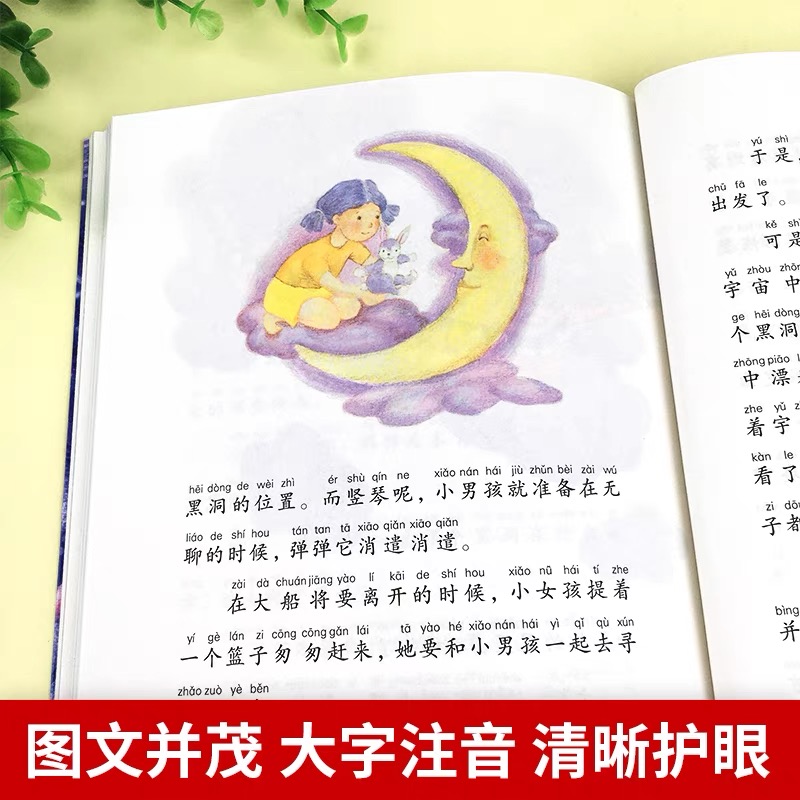 hēi dòng de wèi zhì ér shù qín ne xiǎo nán hái jiù zhǔn bèi zài wú
黑洞的位置。而竖琴呢，小男孩就准备在无
liáo de shí hou tán tan tā xiāo qiǎn xiāo qiǎn
聊的时候，弹弹它消遣消遣。
zài dà chuán jiāng yào lí kāi de shí hou xiǎo nǚ hái tí zhe
在大船将要离开的时候，小女孩提着
yí gè lán zi cōng cōng gǎn lái tā yào hé xiǎo nán hái yì qǐ qù xún
一个篮子匆匆赶来，她要和小男孩一起去寻
zhǎo zuò yè běn
yú shì
于是
chū fā le
出发了。
kě shì
可是
yǔ zhòu zhōng
宇宙中
ge hēi dòng
个黑洞
zhōng piāo
中漂
zhe yǔ
着宇
kàn le
看了
zi dōu
子都
bìng
并
图文并茂 大字注音 清晰护眼